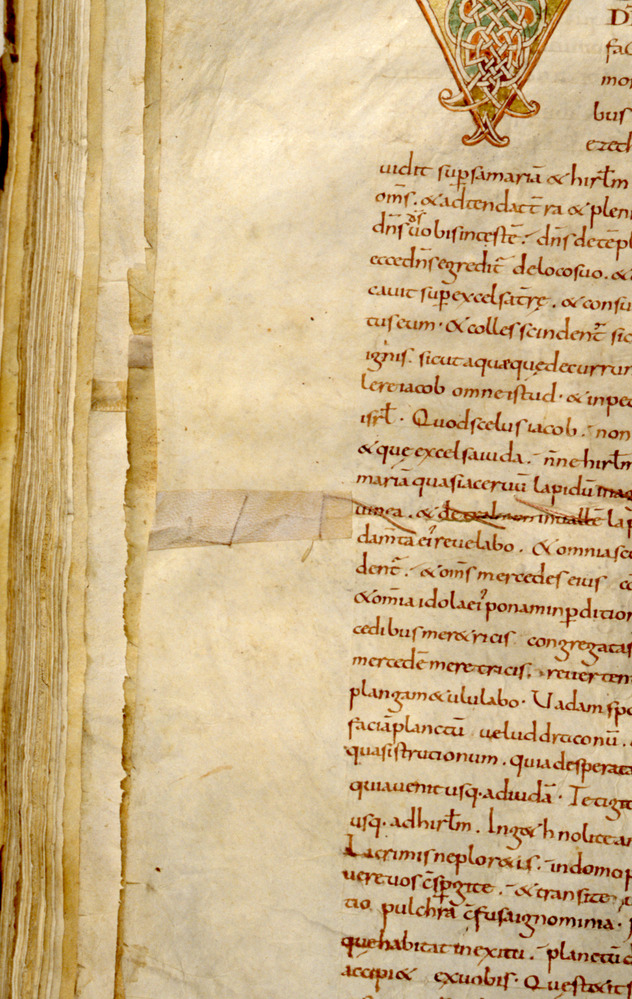 D
fac
mor
bus
ezech
uidit sup samariā & hirłm
om̄s. & adtendat t̄ra & pleni
dn̄s uobis in testē. dn̄s de tēpl
ecce dn̄s egredit̄ de loco suo. &
cauit sup excelsa t̄rę. & consu
tus eum. & colles scindent̄ sic
ignis. sicut aquæ quę decurrun
lere iacob omne istud. & in pec
isrł. Quod scelus iacob. non
& quę excelsa iuda. n̄ne hirłm
mariā quasi aceruū lapidū
uinea. & lap
dam̄ta ei' reuelabo. & omnia sc
dent̄. & om̄s mercedes eius co
& om̄ia idola ei' ponam in p̱dition
cedibus mer&ricis congregatas
mercedē meretricis. reuerten
plangam & ululabo. Uadam spo
faciā planctū uelud draconū.
quasi strutionum. quia desperata
quia uenit usq. ad iudā. Tetigit
usq. ad hirłm. In g&h nolite an
Lacrimis ne plor&is. in domo p
uere uos c̄sp̱gite. & transite
tio pulchrā c̄fusa ignominia.
quę habitat in exitu. planctū d
accipi& ex uobis. Que st&it s